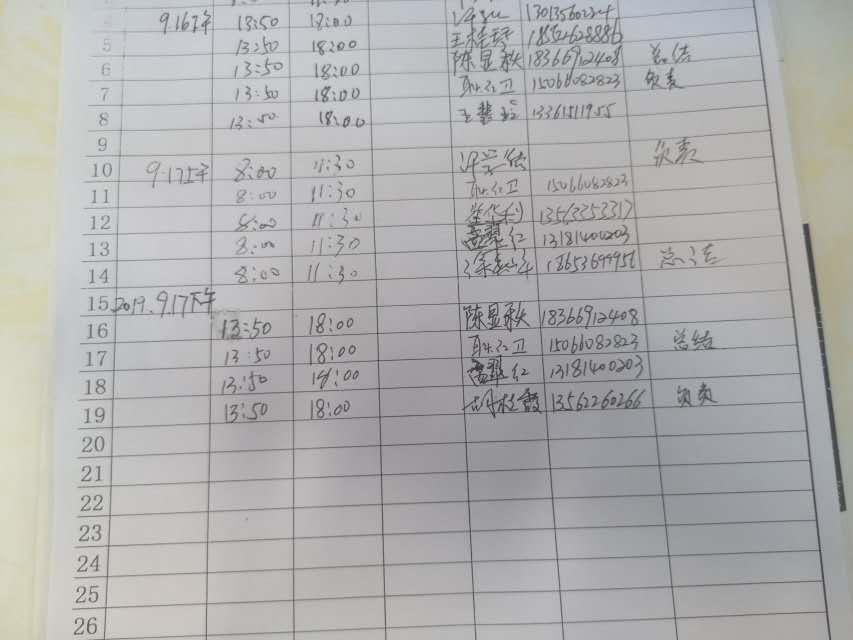 9.16下午 13:50 18:00
5 13:50 18:00 王桂琴 18552628886
6 13:50 18:00 陈显秋 18366912408 总结
7 13:50 18:00 耿红卫 15066082823 负责
8 13:50 18:00 13361511955
9
10 9.17上午 8:00 11:30 负责
11 8:00 11:30 耿红卫 15066082823
12 8:00 11:30 13563353317
13 8:00 11:30 孟翠红 13181400203
14 8:00 11:30 18653699956 总结
15 2019.9.17下午
16 13:50 18:00 陈显秋 18366912408
17 13:50 18:00 耿红卫 15066082823 总结
18 13:50 18:00 孟翠红 13181400203
19 13:50 18:00 胡桂霞 13562260266 负责
20
21
22
23
24
25
26